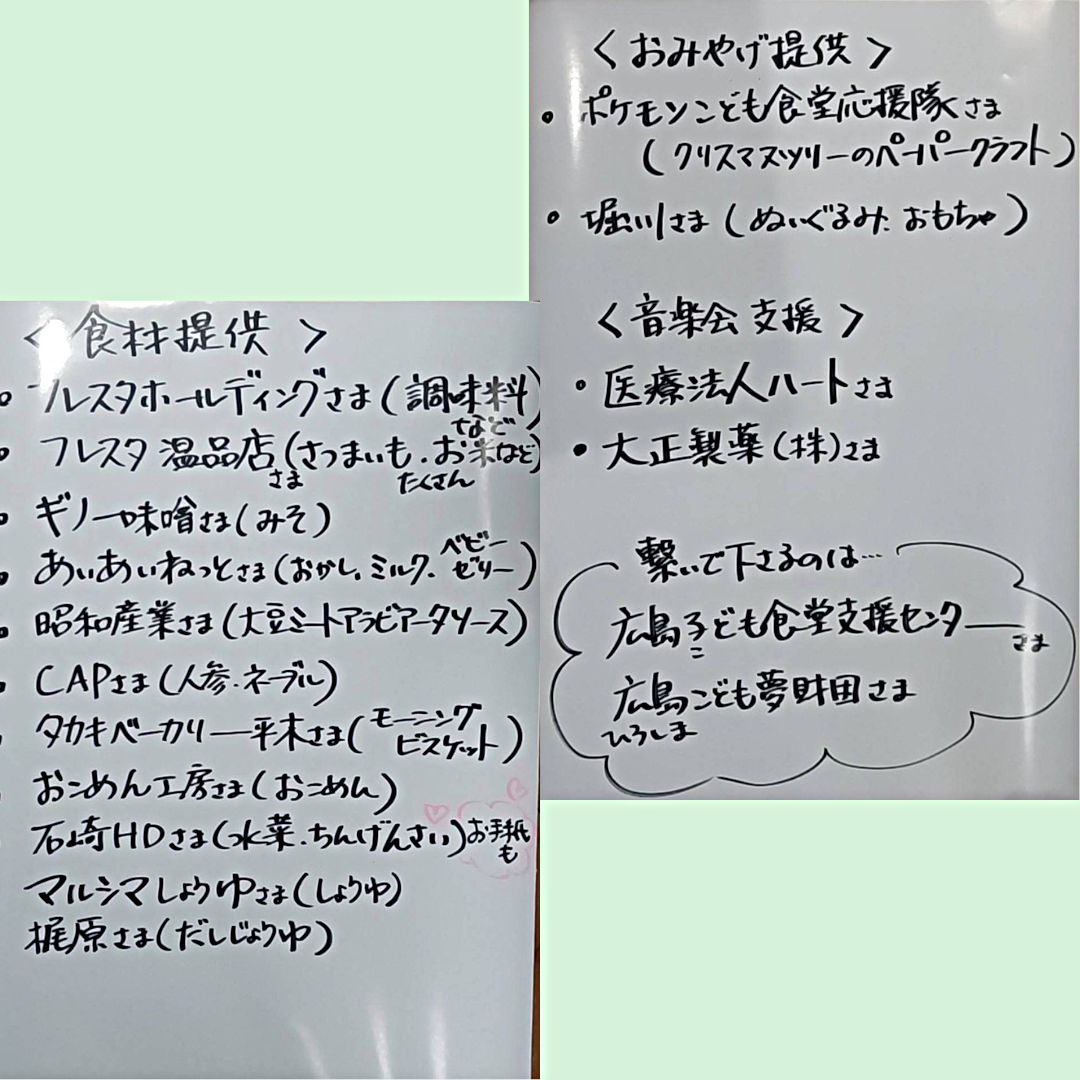 ＜食材提供＞
・フレスタホールディングさま(調味料など)
・フレスタ温品店さま(さつまいも・お米などたくさん)
・ギノー味噌さま(みそ)
・あいあいねっとさま(おかし、ミルク、ベビーゼリー)
・昭和産業さま(大豆ミートアラビアータソース)
・CAPさま(人参・ネーブル)
・タカキベーカリー平木さま(モーニングビスケット)
・おこめん工房さま(おこめん)
石﨑HDさま(水菜・ちんげんさい)お手紙も
マルシマしょうゆさま(しょうゆ)
梶原さま(だしじょうゆ)
＜おみやげ提供＞
・ポケモンこども食堂応援隊さま
(クリスマスツリーのペーパークラフト)
・堀川さま(ぬいぐるみ、おもちゃ)
＜音楽会支援＞
・医療法人ハートさま
・大正製薬(株)さま
繋いで下さるのは…
広島子ども食堂支援センターさま
こ
広島こども夢財団さま
ひろしま